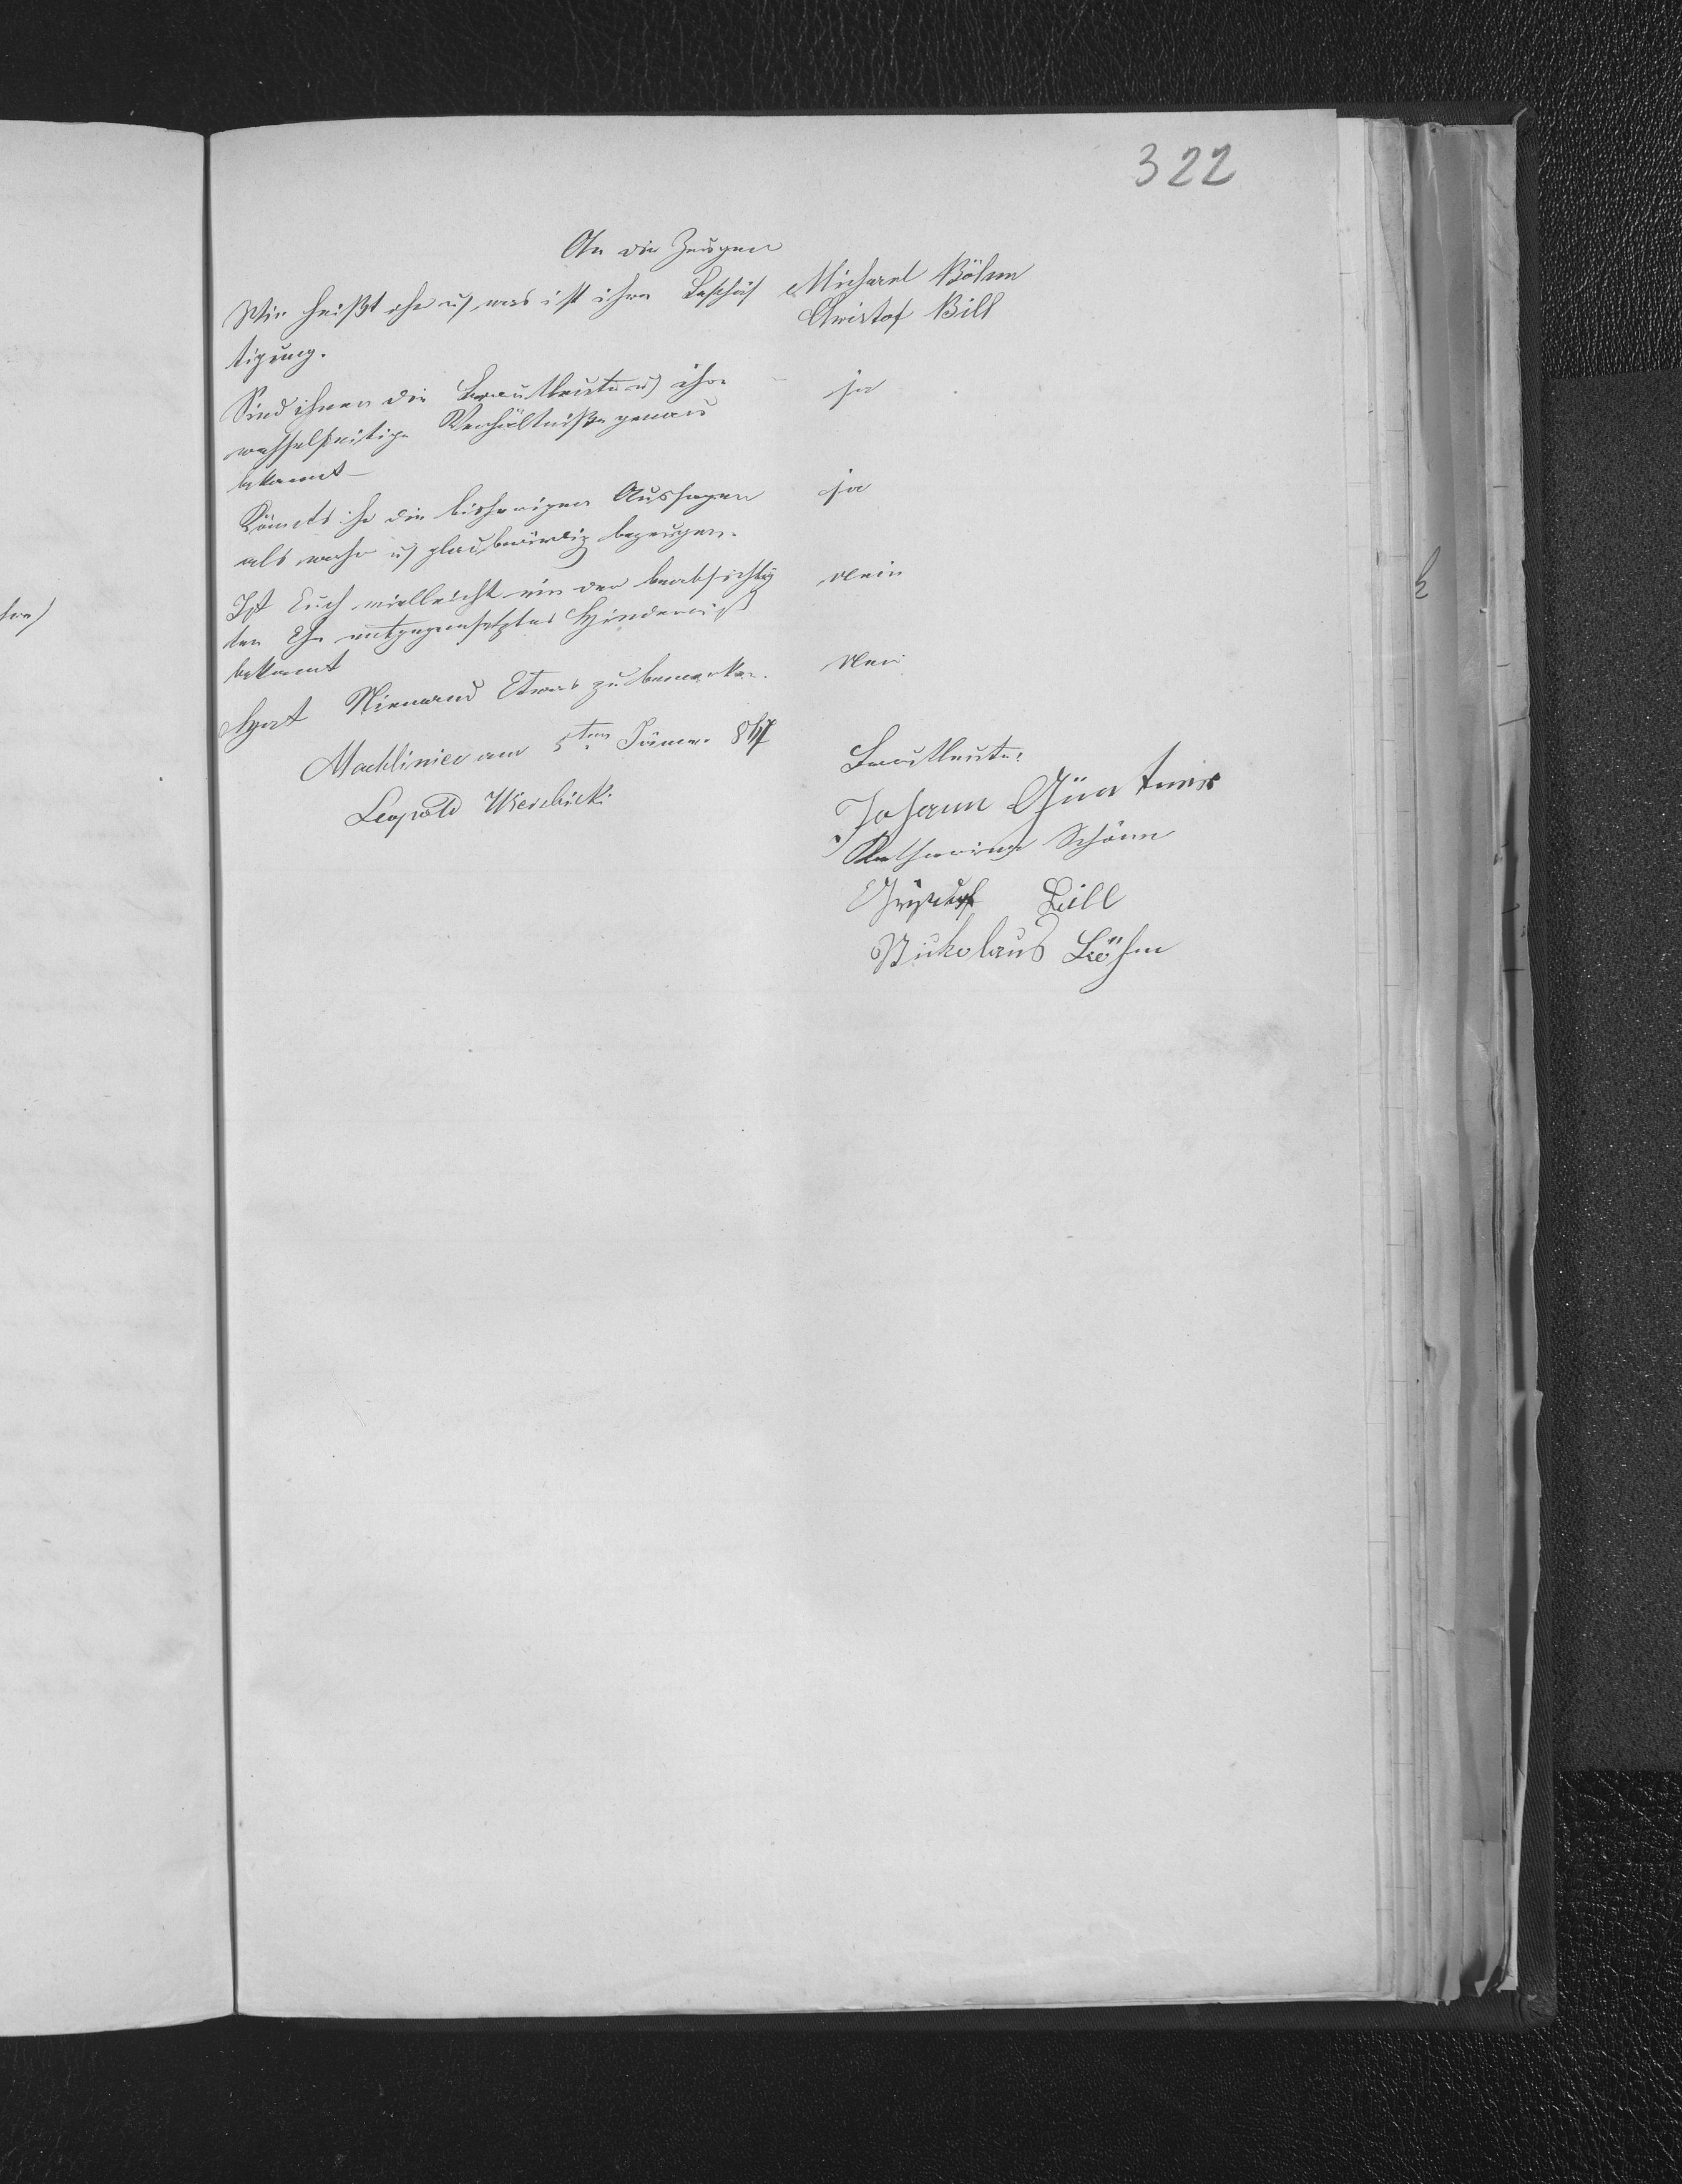 322
An die Zeugen
Wie heißt ihr u was ist ihre Beschäf
tigung.
Michael Böhm
Christof Bill
Sind ihnen die Brautleute u ihre
wechselseitige Verhältniße genau
bekannt
ja
Könnts ihr die bisherigen Aussagen
als wahr u glaubwürdig bezeugen.
ja
Ist Euch vielleicht ein der beabsichtig
ten Ehe entgegensetztes Hinderniß
bekannt
Nein
Hat Niemand Etwas zu bemerken.
Nein
Machliniec am 5ten Jänner 867
Leopold
Brautleute:
Johann
Katharina Schönn
Bill
Nikolaus Böhm